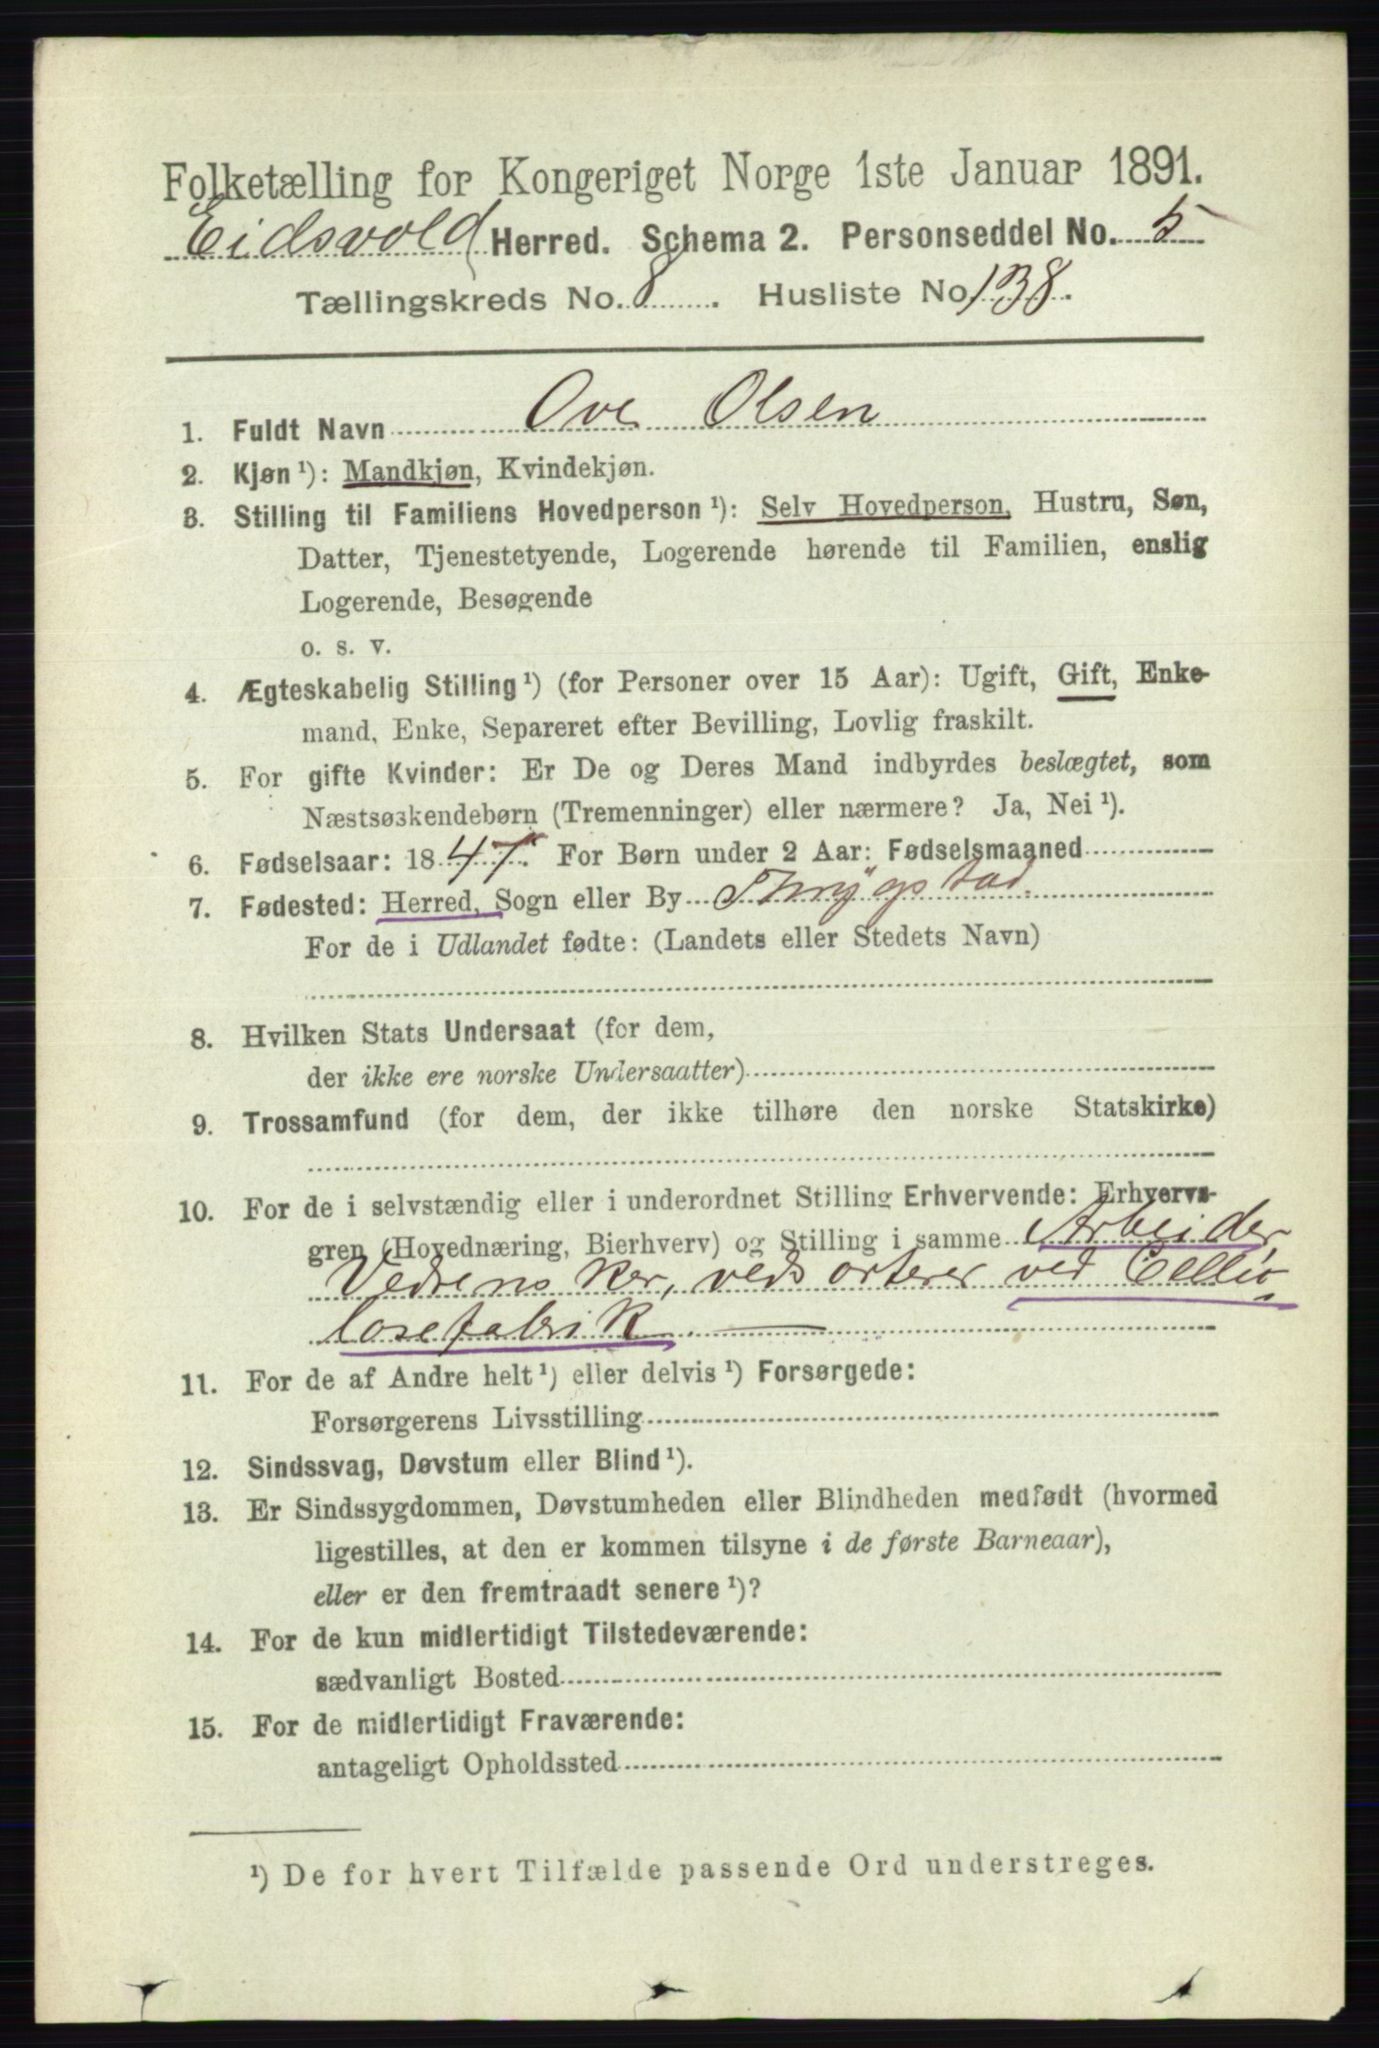 Folketælling for Kongeriget Norge 1ste Januar 1891.
Eidsvold Herred. Schema 2. Personseddel No. 5
Tællingskreds No. 8. Husliste No 138.
1. Fuldt Navn Ove Olsen
2. Kjøn ¹): Mandkjøn, Kvindekjøn.
3. Stilling til Familiens Hovedperson ¹): Selv Hovedperson, Hustru, Søn,
Datter, Tjenestetyende, Logerende hørende til Familien, enslig
Logerende, Besøgende
o. s. v.
4. Ægteskabelig Stilling ¹) (for Personer over 15 Aar): Ugift, Gift, Enke-
mand, Enke, Separeret efter Bevilling, Lovlig fraskilt.
5. For gifte Kvinder: Er De og Deres Mand indbyrdes beslægtet, som
Næstsøskendebørn (Tremenninger) eller nærmere? Ja, Nei ¹).
6. Fødselsaar: 1847. For Børn under 2 Aar: Fødselsmaaned
7. Fødested: Herred, Sogn eller By Thrygstad.
For de i Udlandet fødte: (Landets eller Stedets Navn)
8. Hvilken Stats Undersaat (for dem,
der ikke ere norske Undersaatter)
9. Trossamfund (for dem, der ikke tilhøre den norske Statskirke)
10. For de i selvstændig eller i underordnet Stilling Erhvervende: Erhvervs-
gren (Hovednæring, Bierhverv) og Stilling i samme Arbeider,
Vedrensker, vedsorterer ved Cellu
losefabrik.
11. For de af Andre helt ¹) eller delvis ¹) Forsørgede:
Forsørgerens Livsstilling
12. Sindssvag, Døvstum eller Blind ¹).
13. Er Sindssygdommen, Døvstumheden eller Blindheden medfødt (hvormed
ligestilles, at den er kommen tilsyne i de første Barneaar),
eller er den fremtraadt senere ¹)?
14. For de kun midlertidigt Tilstedeværende:
sædvanligt Bosted
15. For de midlertidigt Fraværende:
antageligt Opholdssted
¹) De for hvert Tilfælde passende Ord understreges.